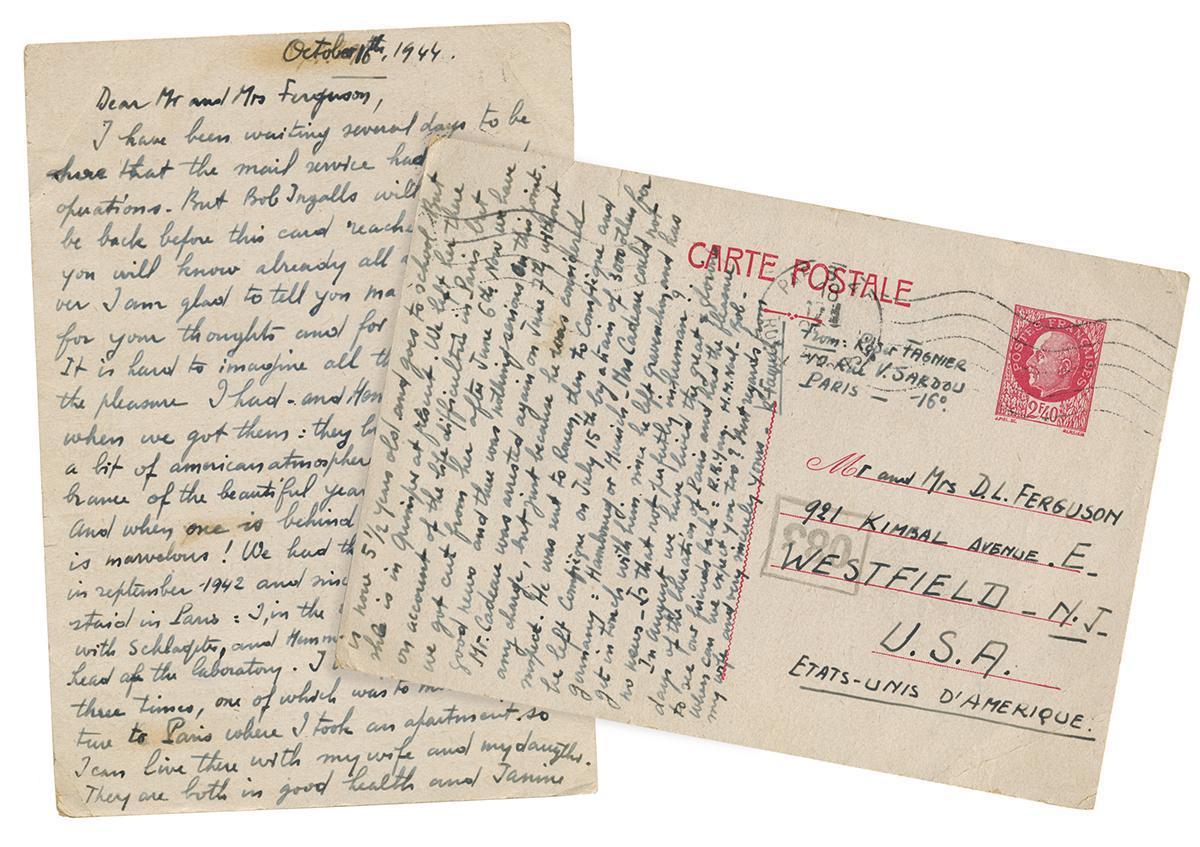 October 16th, 1944.
Dear Mr and Mrs Ferguson,
I have been waiting several days to be
shure that the mail service had
opuations. But Bob Ingalls will
be back before this card reache
you will know already all
ver I am glad to tell you ma
for your thoughts and for
It is hard to imagine all th
the pleasure I had - and Hem
when we got them : they b
a bit of american atmospher
brance of the beautiful year
and when one is behind
is marvelous ! We had th
in september 1942 and sinc
staid in Paris : I, in the
with Schlagter, and Hemm
head of the laboratory. I
three times, one of which was to m
ture to Paris where I took an apartment, so
I can live there with my wife and my daughter.
They are both in good health and Janine
is now 5 1/2 years old and goes to school. But
she is in Quimper at We left her there
on account of the life difficulties in Paris but
we got cut from her after June 6th. Now we have
good news and there was nothing serious on this point.
Mr. Cadeau was arrested again on June 7th without
any charge, but just because he was considered
suspect. He was sent to Rennes, then to Compiègne and
he left Compiègne on July 15th by a train of 3000 others for
Germany : Hambourg or Munich - Mrs Cadeau could not
get in touch with him since he left Quimper and has
no news - Is that not perfectly inhuman ?
In anyway we have lived the great & glorious
days of the liberation of Paris and had the pleasure
to see our friends back : R.R.Y.
when can we expect you too ? Best regards from
my wife and very sincerely yours - R Tagnier
CARTE POSTALE
From: Roger TAGNIER
Rue V. SARDOU
PARIS - 16°
POSTES FRANÇAISES
2F40
Mr and Mrs D.L. FERGUSON
921 KIMBAL AVENUE. E_
WESTFIELD - N.J_
U.S.A.
ETATS-UNIS D'AMERIQUE.
083